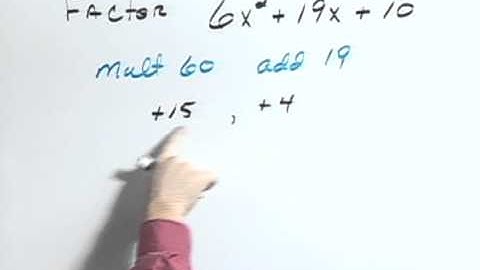 Factor 6x² + 19x + 10
mult 60 add 19
+15 , +4